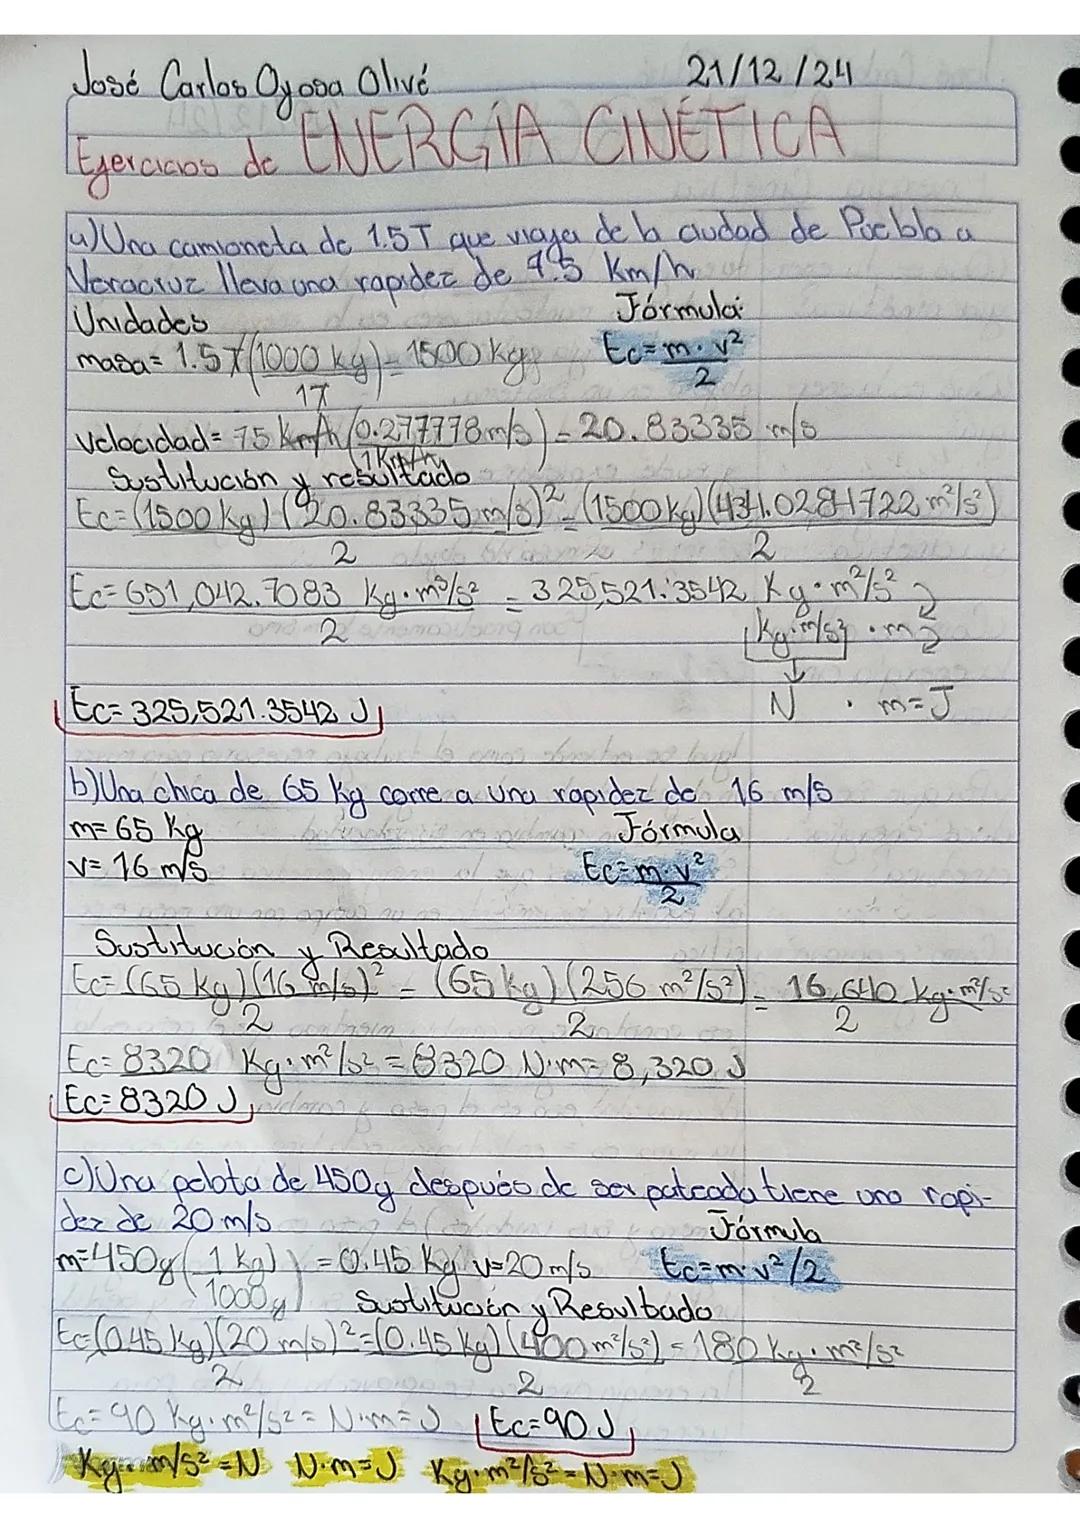 José Carlos Oyosa Olivé 21/12/24
Ejercicios de ENERGÍA CINÉTICA
a) Una camioneta de 1.5T que viaja de la ciudad de Puebla a
Veracruz lleva una rapidez de 75 Km/h
Unidades Fórmula:
masa = 1.5T (1000 kg / 1T) = 1500 kg Ec = m · v² / 2
velocidad = 75 Km/h (0.277778 m/s / 1 Km/h) = 20.83335 m/s
Sustitución y resultado
Ec = (1500 kg) (20.83335 m/s)² / 2 = (1500 kg) (434.0284722 m²/s²) / 2
Ec = 651,042.7083 Kg · m²/s² / 2 = 325,521.3542 Kg · m²/s²
Kg · m/s² · m
N · m = J
Ec = 325,521.3542 J
b) Una chica de 65 Kg corre a una rapidez de 16 m/s
m = 65 Kg Fórmula
v = 16 m/s Ec = m · v² / 2
Sustitución y Resultado
Ec = (65 kg) (16 m/s)² / 2 = (65 kg) (256 m²/s²) / 2 = 16,640 kg · m²/s² / 2
Ec = 8320 Kg · m²/s² = 8320 N·m = 8,320 J
Ec = 8320 J
c) Una pelota de 450g después de ser pateada tiene una rapi-
dez de 20 m/s Fórmula
m = 450g (1 kg / 1000g) = 0.45 Kg v = 20 m/s Ec = m · v²/2
Sustitución y Resultado
Ec = (0.45 Kg) (20 m/s)² / 2 = (0.45 kg) (400 m²/s²) / 2 = 180 Kg · m²/s² / 2
Ec = 90 Kg · m²/s² = N·m = J Ec = 90 J
Kg · m/s² = N N·m = J Kg · m²/s² = N·m = J